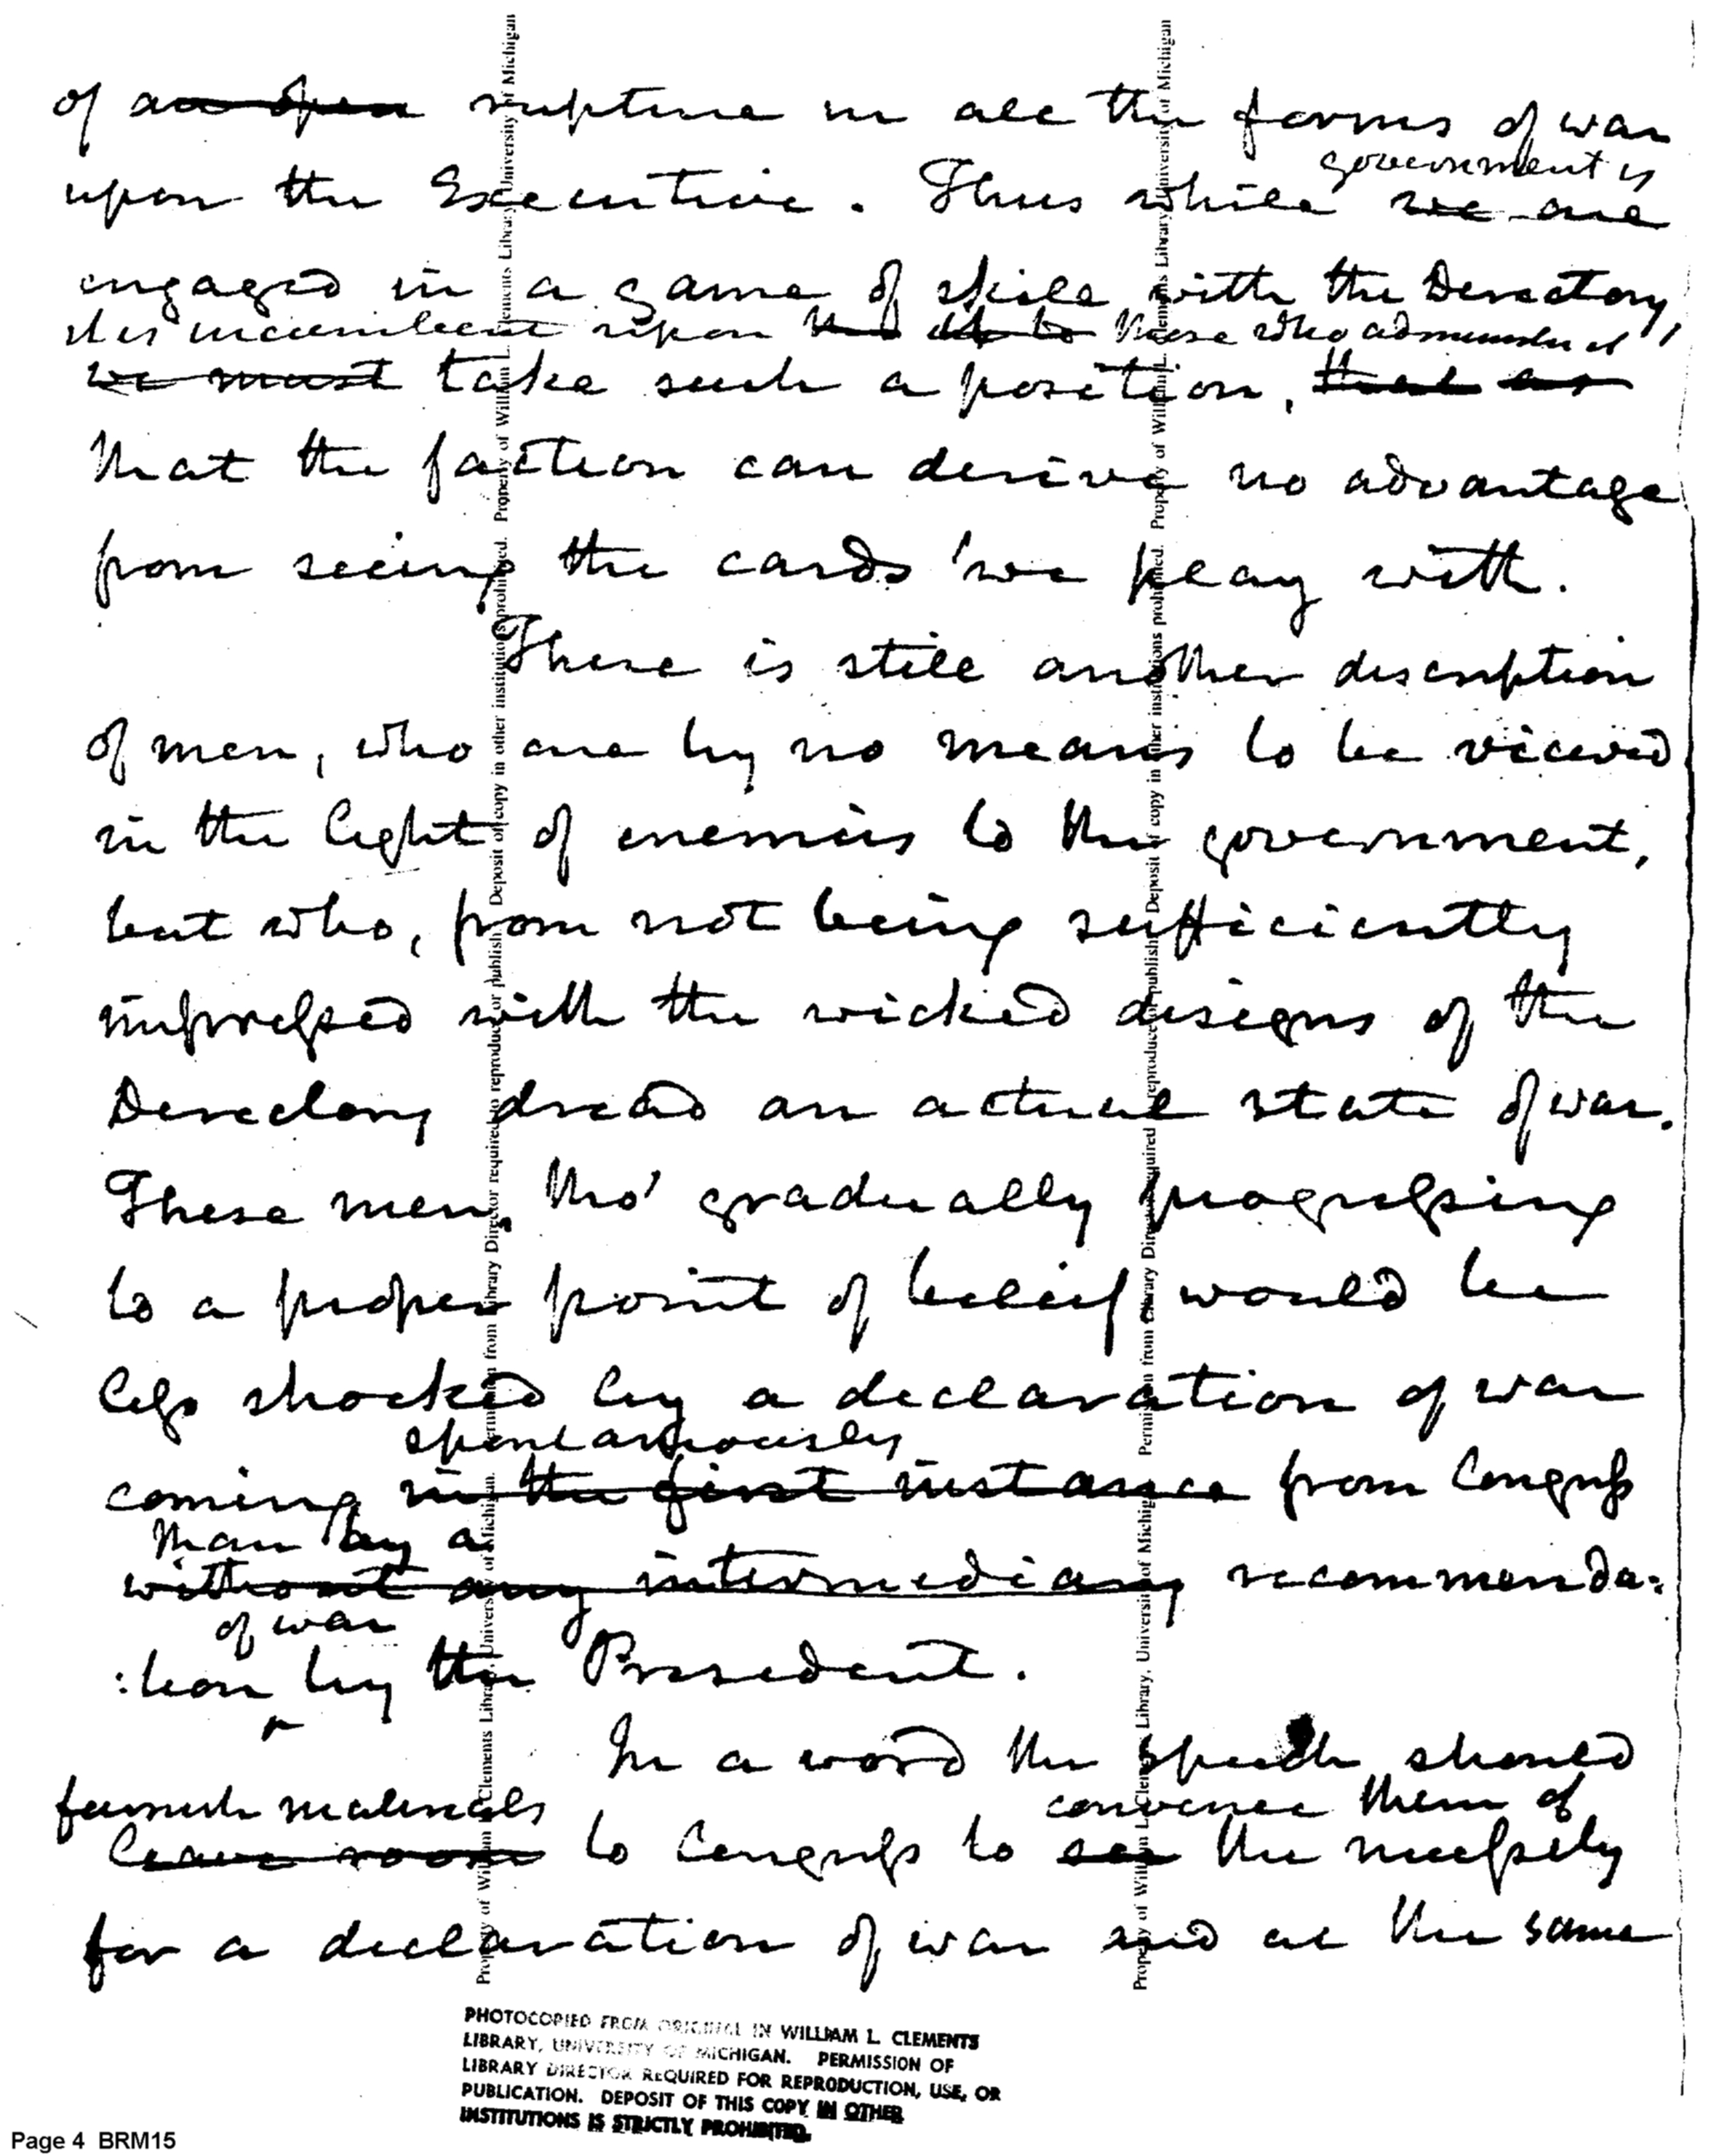 of an open rupture in all the forms of war
government is
upon the Executive. Thus while we are
engaged in a game of skill with the Directory,
it is incumbent upon those who administer it
we must take such a position, that as
that the faction can derive no advantage
from seeing the cards we play with.
There is still another description
of men, who are by no means to be viewed
in the light of enemies to the government,
but who, from not being sufficiently
impressed with the wicked designs of the
Directory dread an actual state of war.
These men, tho' gradually progressing
to a proper point of belief would be
less shocked by a declaration of war
spontaneously
coming in the first instance from Congress
than by a
without any intermediary recommenda:
of war
:tion by the President.
In a word the speech should
furnish materials convince them of
leave room to Congress to see the necessity
for a declaration of war and at the same
PHOTOCOPIED FROM ORIGINAL IN WILLIAM L. CLEMENTS
LIBRARY, UNIVERSITY OF MICHIGAN. PERMISSION OF
LIBRARY DIRECTOR REQUIRED FOR REPRODUCTION, USE, OR
PUBLICATION. DEPOSIT OF THIS COPY IN OTHER
INSTITUTIONS IS STRICTLY PROHIBITED.
Page 4 BRM15
Property of William L. Clements Library, University of Michigan. Permission from Library Director required to reproduce or publish. Deposit of copy in other institutions prohibited. Property of William L. Clements Library, University of Michigan
Property of William L. Clements Library, University of Michigan. Permission from Library Director required to reproduce or publish. Deposit of copy in other institutions prohibited. Property of William L. Clements Library, University of Michigan